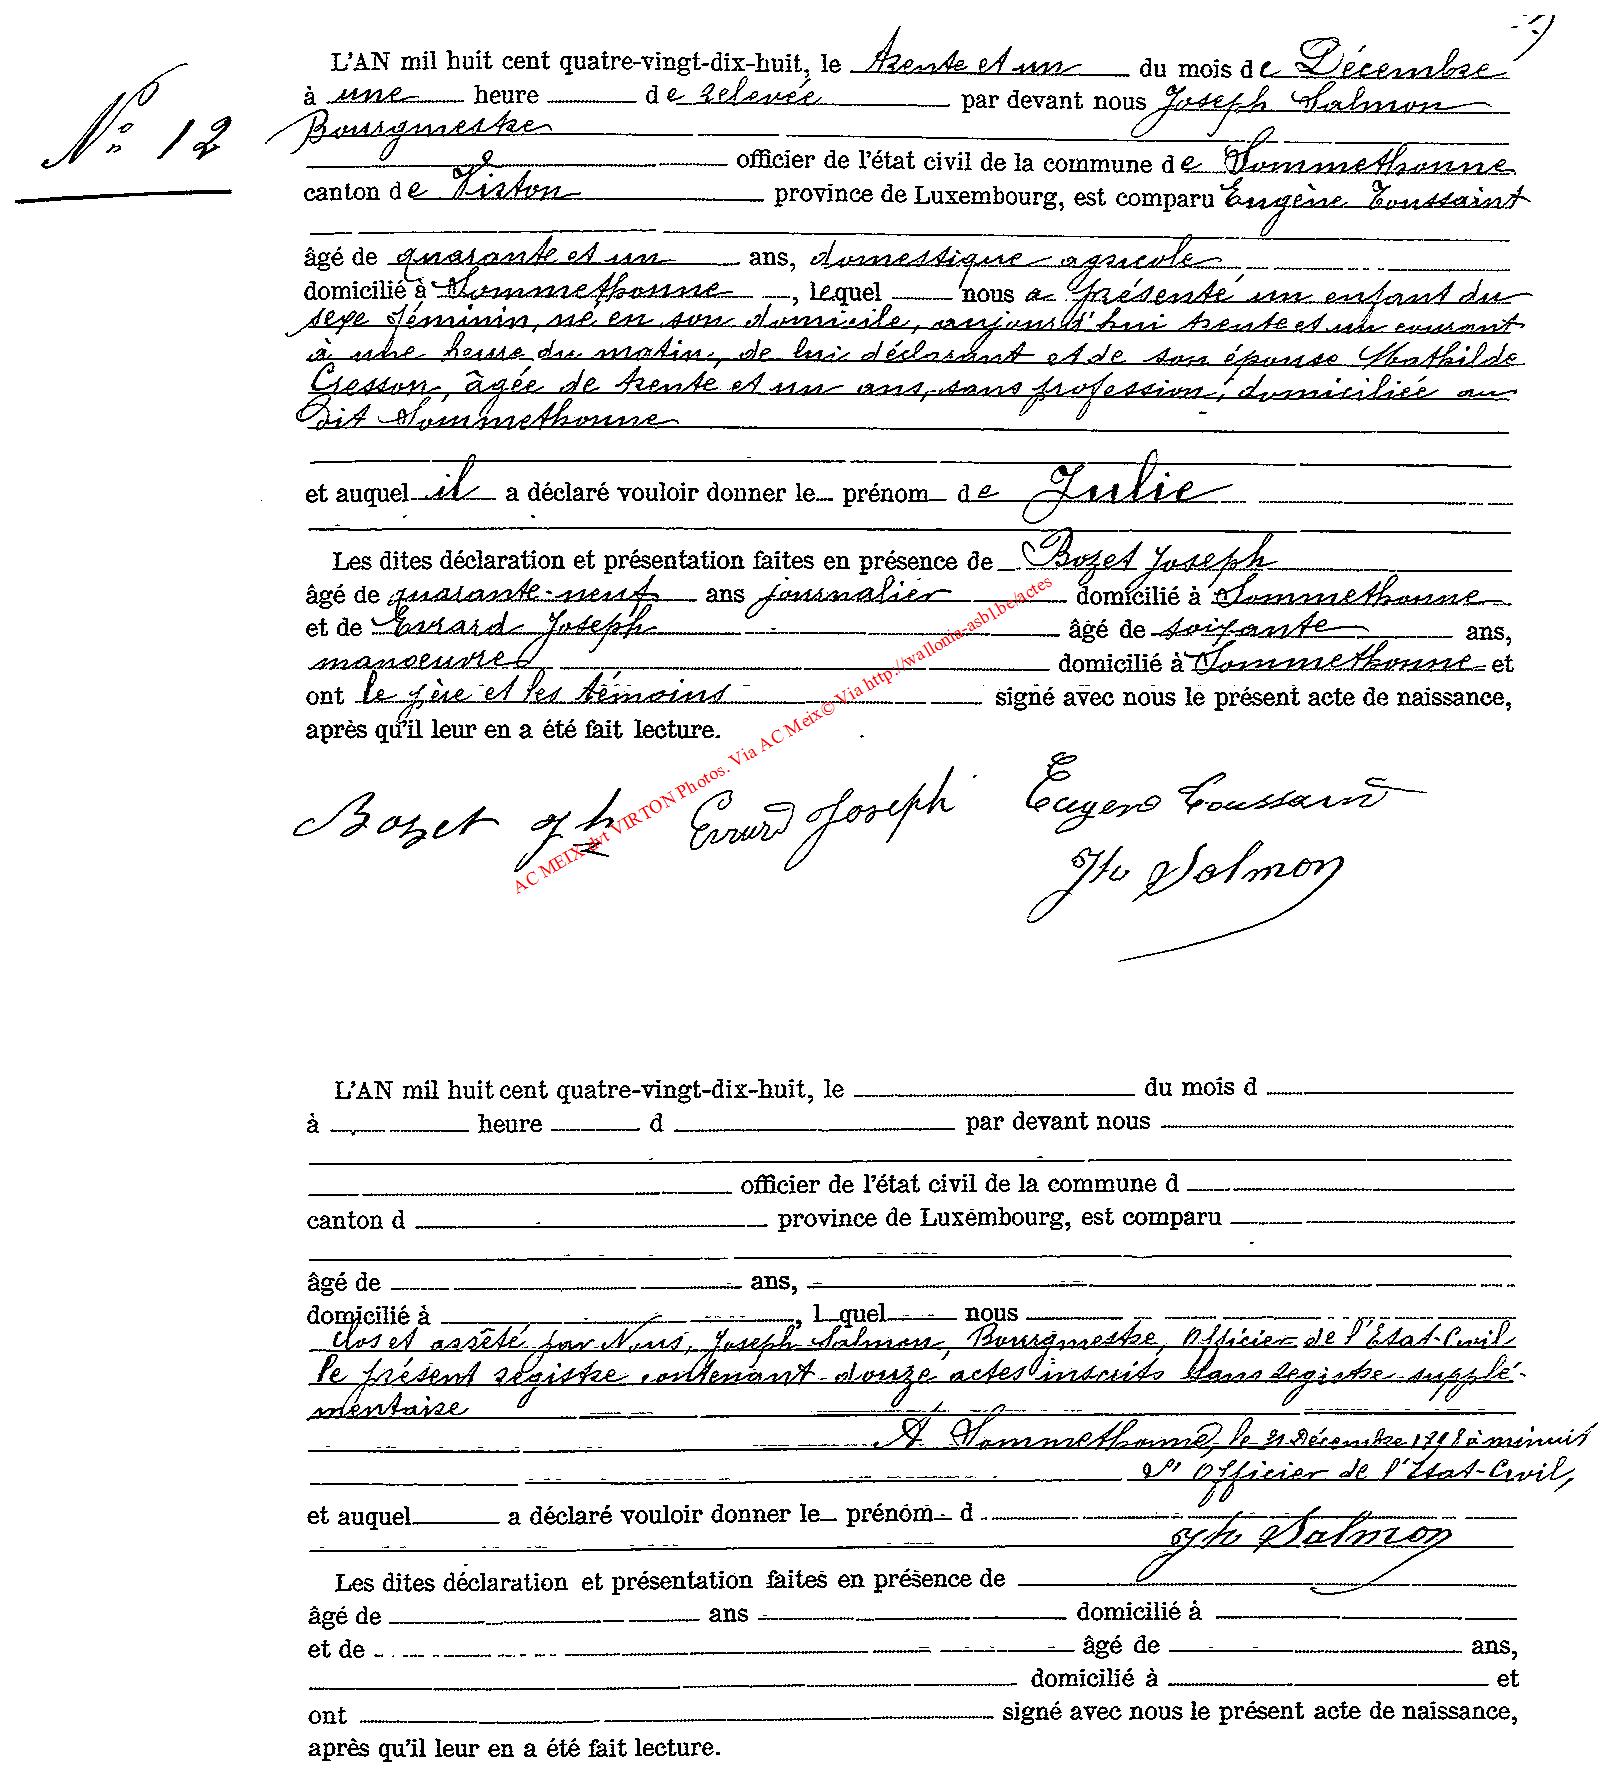 N° 12
L'AN mil huit cent quatre-vingt-dix-huit, le trente et un du mois de Décembre
à une heure de relevée par devant nous Joseph Salmon
Bourgmestre
officier de l'état civil de la commune de Sommethonne
canton de Virton province de Luxembourg, est comparu Eugène Toussaint
âgé de quarante et un ans, domestique agricole
domicilié à Sommethonne, lequel nous a présenté un enfant du
sexe féminin, né en son domicile, aujourd'hui trente et un courant
à une heure du matin, de lui déclarant et de son épouse Mathilde
Cresson, âgée de trente et un ans, sans profession, domiciliée au
dit Sommethonne
et auquel il a déclaré vouloir donner le prénom de Julie
Les dites déclaration et présentation faites en présence de Bozet Joseph
âgé de quarante-neuf ans journalier domicilié à Sommethonne
et de Evrard Joseph âgé de soixante ans,
manœuvre domicilié à Sommethonne et
ont le père et les témoins signé avec nous le présent acte de naissance,
après qu'il leur en a été fait lecture.
AC MEIX dvt VIRTON Photos. Via AC Meix© Via http://wallonia-asbl.be/actes
Bozet jph Evrard Joseph Eugene Toussaint
Jh Salmon
L'AN mil huit cent quatre-vingt-dix-huit, le du mois d
à heure d par devant nous
officier de l'état civil de la commune d
canton d province de Luxembourg, est comparu
âgé de ans,
domicilié à , l quel nous
Clos et arrêté par Nous, Joseph Salmon, Bourgmestre, Officier de l'Etat-Civil
le présent registre contenant douze actes inscrits sans registre supplé-
mentaire
A Sommethonne, le 31 Décembre 1898 à minuit
L'Officier de l'Etat-Civil,
et auquel a déclaré vouloir donner le prénom d
Jh Salmon
Les dites déclaration et présentation faites en présence de
âgé de ans domicilié à
et de âgé de ans,
domicilié à et
ont signé avec nous le présent acte de naissance,
après qu'il leur en a été fait lecture.